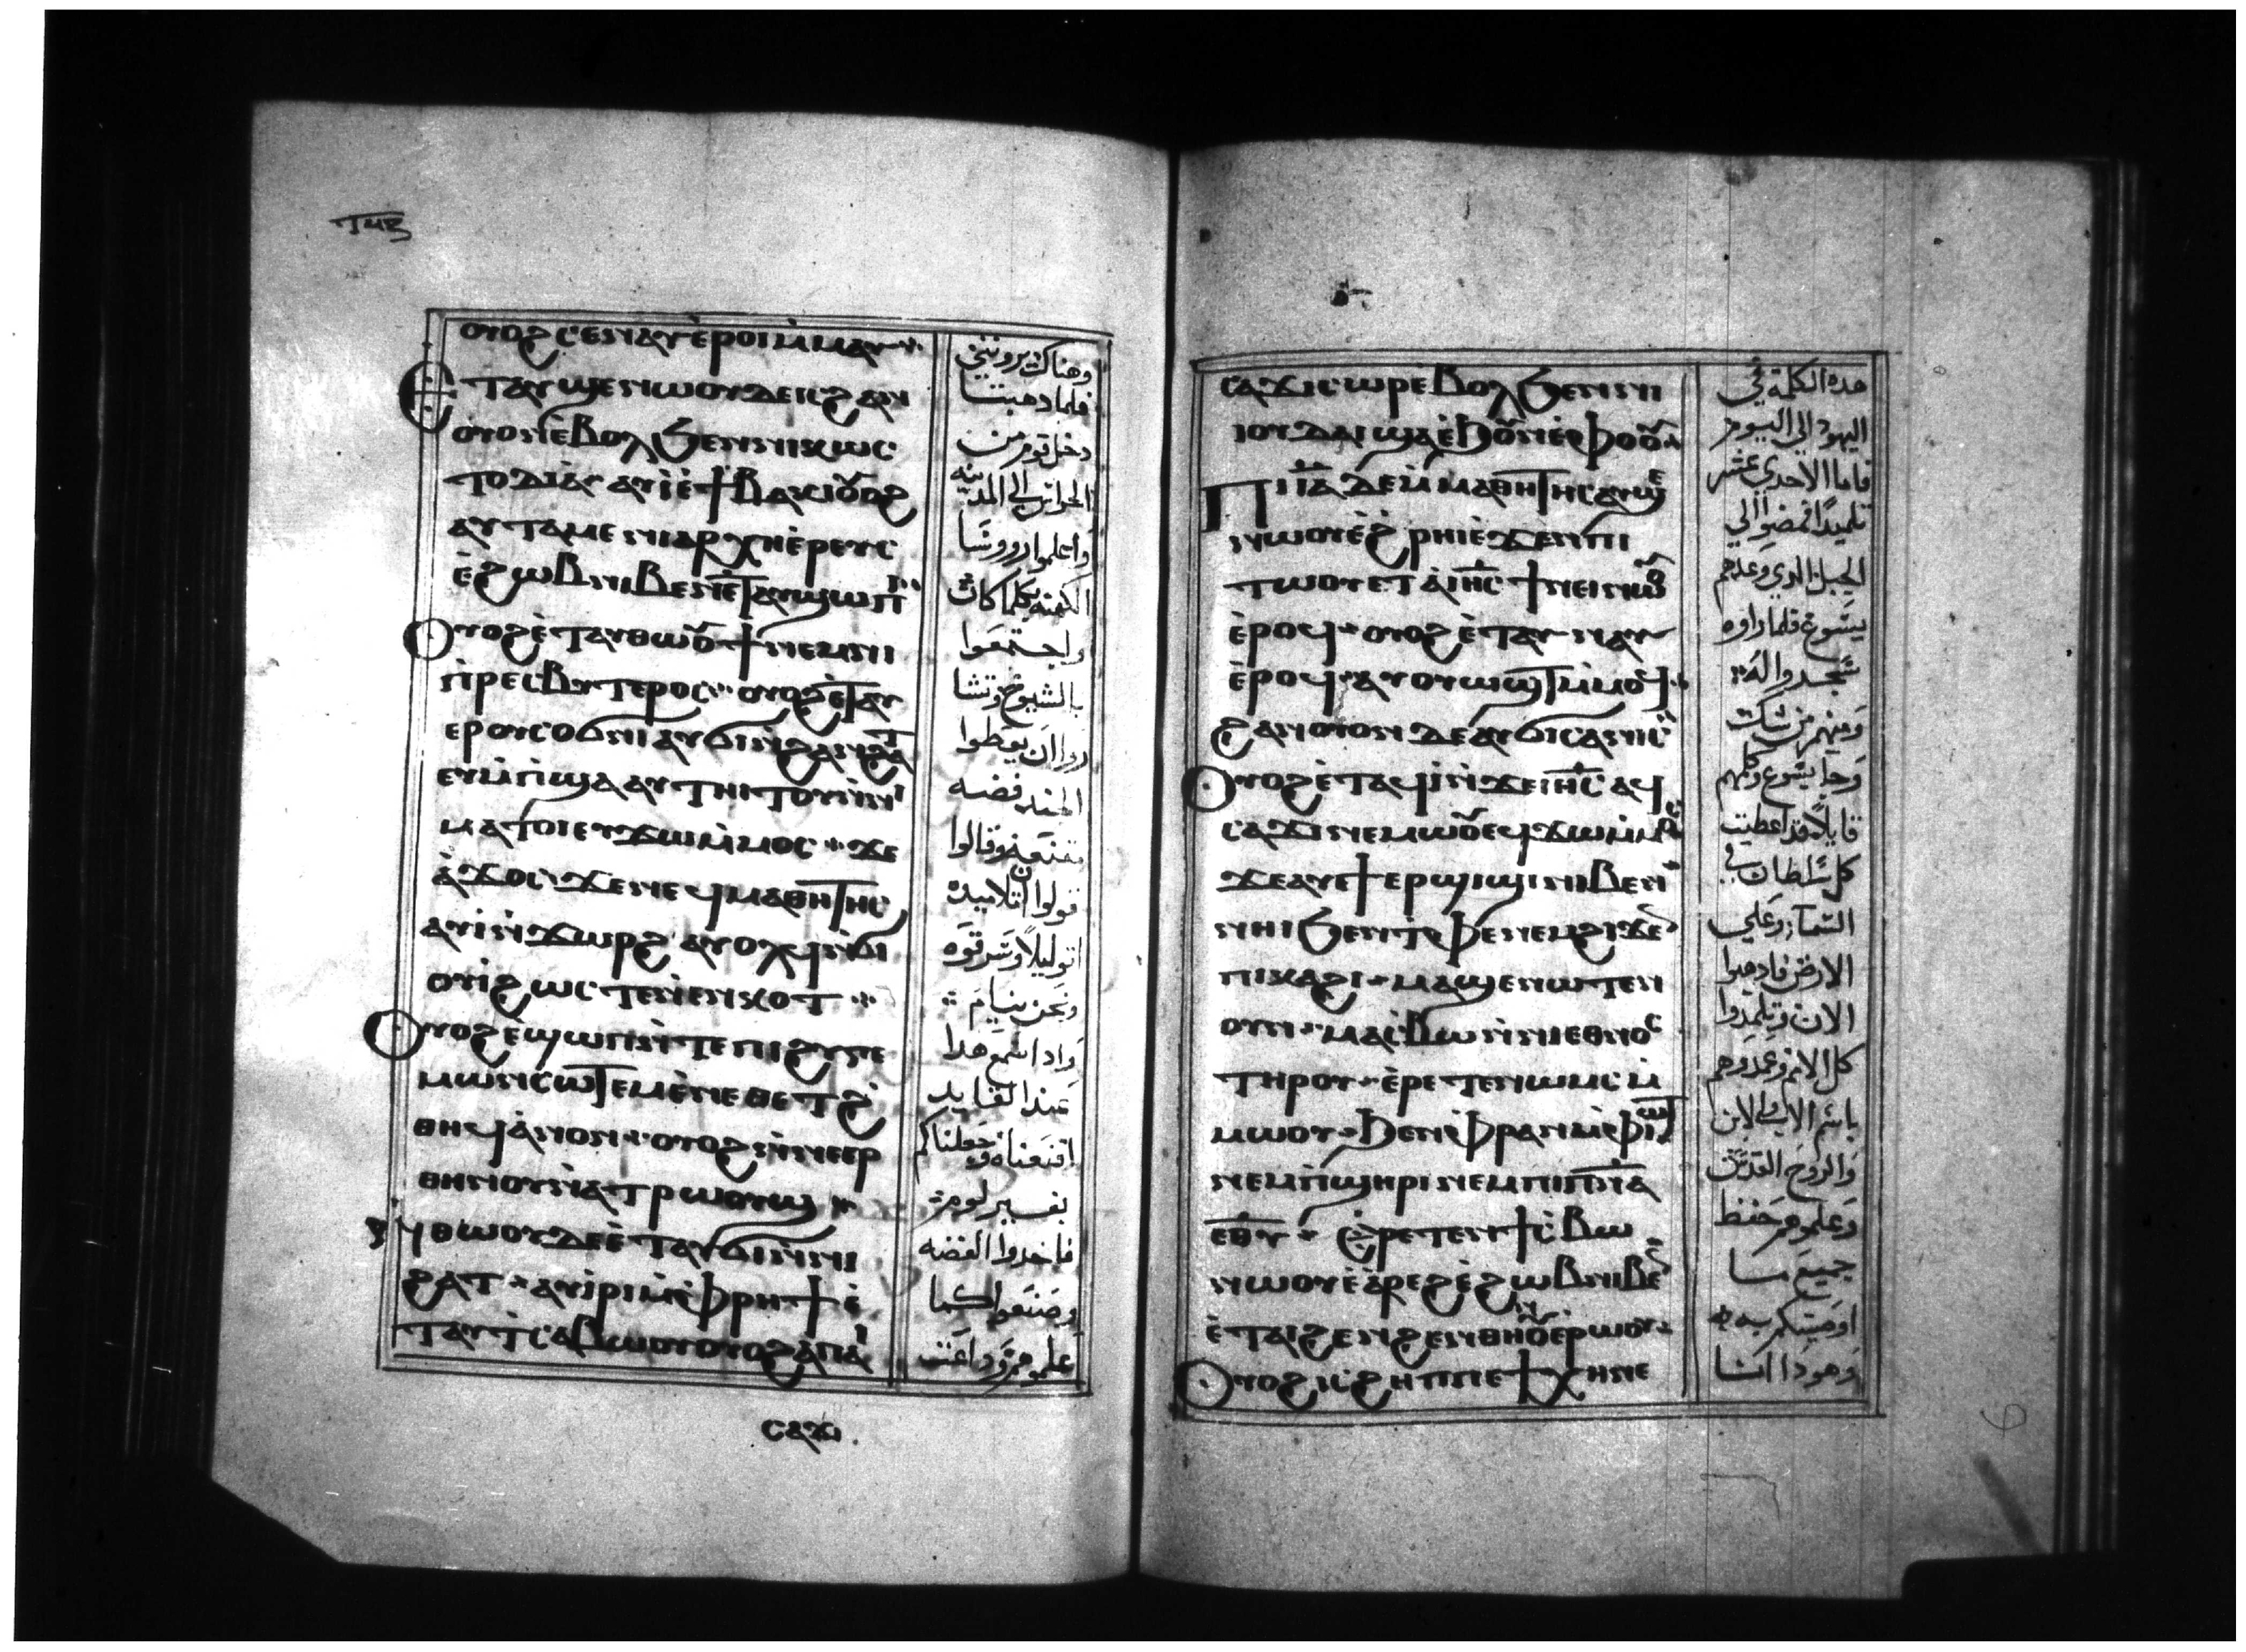 ⲟⲩⲟϩ ⲥⲉⲛⲁⲩ ⲉ̀ⲣⲟⲓ ⲙ̀ⲙⲁⲩ
ⲉⲧⲁⲩϣⲉⲛⲱⲟⲩ ⲇⲉ ⲓⲥ ϩⲁⲛ
ⲟⲩⲟⲛ ⲉ̀ⲃⲟⲗ ϧⲉⲛ ⲛⲓⲕⲱⲥ
ⲧⲟⲇⲓⲁ̀ ⲁⲩⲓ̀ ⲉ̀ϯⲃⲁⲕⲓ ⲟⲩⲟϩ
ⲁⲩⲧⲁⲙⲉ ⲛⲓⲁⲣⲭⲏⲉ̀ⲣⲉⲩⲥ
ⲉ̀ϩⲱⲃ ⲛⲓⲃⲉⲛ ⲉ̀ⲧⲁⲩϣⲱⲡⲓ
ⲟⲩⲟϩ ⲉ̀ⲧⲁⲩⲑⲱⲟⲩϯ ⲛⲉⲙ ⲛⲓ
ⲡⲣⲉⲥⲃⲩⲧⲉⲣⲟⲥ ⲟⲩⲟϩ ⲉ̀ⲧⲁⲩ
ⲉⲣⲟⲩⲥⲟϭⲛⲓ ⲁⲩϭⲓ ⲛ̀ϩⲁⲛϩⲁⲧ
ⲉⲩⲙ̀ⲡϣⲁ ⲁⲩⲧⲏⲓⲧⲟⲩ ⲛ̀ⲛⲓ
ⲙⲁⲧⲟⲓ ⲉⲩϫⲱ ⲙ̀ⲙⲟⲥ ϫⲉ
ⲁ̀ϫⲟⲥ ϫⲉ ⲛⲉϥⲙⲁⲑⲏⲧⲏⲥ
ⲁⲩⲓ̀ ⲛ̀ϫⲱⲣϩ ⲁⲩⲟⲗϥ ⲛ̀ϭⲓ
ⲟⲩⲓ̀ ϩⲱⲥ ⲧⲉⲛⲉⲛⲕⲟⲧ
ⲟⲩⲟϩ ⲉ̀ϣⲱⲡ ⲛ̀ⲧⲉ ⲡⲓϩⲩⲅⲉ
ⲙⲱⲛ ⲥⲱⲧⲉⲙ ⲉ̀ⲛⲉ ⲑⲉⲧϩⲓ̀
ⲑⲏϥ ⲁ̀ⲛⲟⲛ ⲟⲩⲟϩ ⲛ̀ⲛⲉⲉⲣ
ⲑⲏⲛⲟⲩ ⲛ̀ⲁⲧⲣⲱⲟⲩϣ
ⲛ̀ⲑⲱⲟⲩ ⲇⲉ ⲉ̀ⲧⲁⲩϭⲓ ⲛ̀ⲛⲓ
ϩⲁⲧ ⲁⲩⲓ̀ⲣⲓ ⲙ̀ⲫⲣⲏϯ ⲉ̀
ⲧⲁⲩⲧⲥⲁⲃⲱⲟⲩ ⲟⲩⲟϩ ⲁ̀ ⲡⲁⲓ
ⲥⲁϫⲓ
وهناك يروننى
فلما ذهبتا
دخل قوم من
الحراس الي المدينه
واعلموا رووسا
الكهنه بكلما كان
واجتمعوا
بالشيوخ وتشا
روا ان يعطوا
الجند فضه
مقنعه وقالوا
قولوا ان تلاميده
اتو ليلاً وسرقوه
ونحن نيام
وادا سمع هدا
عند القايد
اقنعناه وجعلناكم
بغير لومه
فاخدوا الفضه
وصنعوا كما
علموهم وداعت
ⲥⲁϫⲓ ⲥⲱⲣ ⲉ̀ⲃⲟⲗ ϧⲉⲛ ⲛⲓ
ⲓⲟⲩⲇⲁⲓ ϣⲁ ⲉ̀ϧⲟⲩⲛ ⲉ̀ⲫⲟⲟⲩ
ⲡⲓⲓ̅ⲁ̅ ⲇⲉ ⲙ̀ⲙⲁⲑⲏⲧⲏⲥ ⲁⲩϣⲉ
ⲛⲱⲟⲩ ⲉ̀ϩⲣⲏⲓ ⲉ̀ϫⲉⲛ ⲡⲓ
ⲧⲱⲟⲩ ⲉⲧⲁ̀ ⲓⲏ̅ⲥ̅ ϯⲙⲉⲓⲛⲓ ⲛⲱⲟⲩ
ⲉ̀ⲣⲟϥ ⲟⲩⲟϩ ⲉ̀ⲧⲁⲩⲛⲁⲩ
ⲉ̀ⲣⲟϥ ⲁⲩⲟⲩⲱϣⲧ ⲙ̀ⲙⲟϥ
ϩⲁⲛⲟⲩⲟⲛ ⲇⲉ ⲁⲩϭⲓⲥⲁⲛⲓⲥ
ⲟⲩⲟϩ ⲉ̀ⲧⲁϥⲓ̀ ⲛ̀ϫⲉ ⲓⲏ̅ⲥ̅ ⲁϥ
ⲥⲁϫⲓ ⲛⲉⲙⲱⲟⲩ ⲉϥϫⲱ ⲙ̀ⲙⲟⲥ
ϫⲉ ⲁⲩϯ ⲉⲣϣⲓϣⲓ ⲛⲓⲃⲉⲛ
ⲛⲏⲓ ϧⲉⲛ ⲧ̀ⲫⲉ ⲛⲉⲙ ϩⲓϫⲉⲛ
ⲡⲓⲕⲁϩⲓ ⲙⲁϣⲉⲛⲱⲧⲉⲛ
ⲟⲩⲛ ⲙⲁⲥ̀ⲃⲱ ⲛ̀ⲛⲓⲉⲑⲛⲟⲥ
ⲧⲏⲣⲟⲩ ⲉ̀ⲣⲉⲧⲉⲛⲱⲙⲥ ⲙ̀
ⲙⲱⲟⲩ ϧⲉⲛ ⲫ̀ⲣⲁⲛ ⲙ̀ⲫ̀ⲓⲱⲧ
ⲛⲉⲙ ⲡ̀ϣⲏⲣⲓ ⲛⲉⲙ ⲡⲓⲡ̅ⲛ̅ⲁ̅
ⲉ̅ⲑ̅ⲩ̅ ⲉ̀ⲣⲉⲧⲉⲛϯⲥ̀ⲃⲱ
ⲛⲱⲟⲩ ⲉ̀ⲁ̀ⲣⲉϩ ⲉ̀ϩⲱⲃ ⲛⲓⲃⲉⲛ
ⲉ̀ⲧⲁⲓϩⲉⲛϩⲉⲛ ⲑⲏⲛⲟⲩ ⲉ̀ⲣⲱⲟⲩ
ⲟⲩⲟϩ ⲓⲥ ϩⲏⲡⲡⲉ ϯⲭⲏ ⲛⲉ
هده الكلمة في
اليهود الي اليوم
فاما الاحدى عشر
تلميدًا فمضوا الي
الجبل الدي وعدهم
يسوع فلما راوه
سجدوا له
ومنهم من شكت
وجا يسوع وكلهم
قايلاً قد اعطيت
كل سلطان في
السما وعلي
الارض فادهبوا
الان وتلمدوا
كل الامم وعمدوهم
باسم الاب والابن
والروح القدس
وعلموهم حفظ
جميع ما
اوصيتكم به
وهودا انا